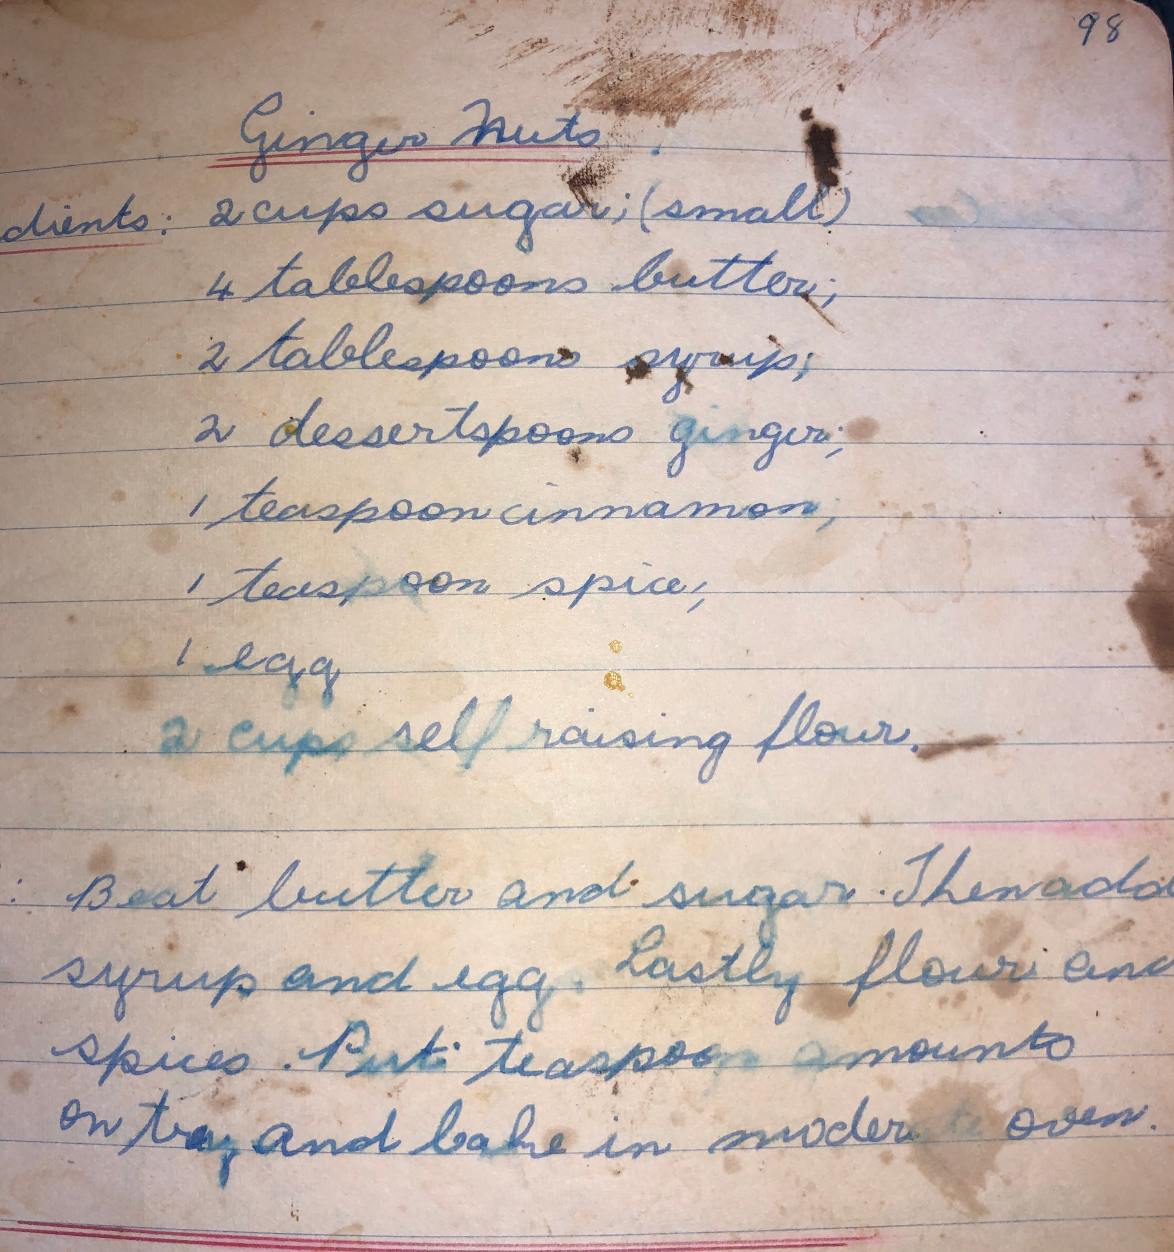 98
Ginger Nuts.
dients: 2 cups sugar; (small)
4 tablespoons butter;
2 tablespoons syrup;
2 dessertspoons ginger;
1 teaspoon cinnamon;
1 teaspoon spice;
1 egg
2 cups self raising flour.
: Beat butter and sugar. Then add
syrup and egg. Lastly flour and
spices. Put teaspoon amounts
on tray and bake in moderate oven.